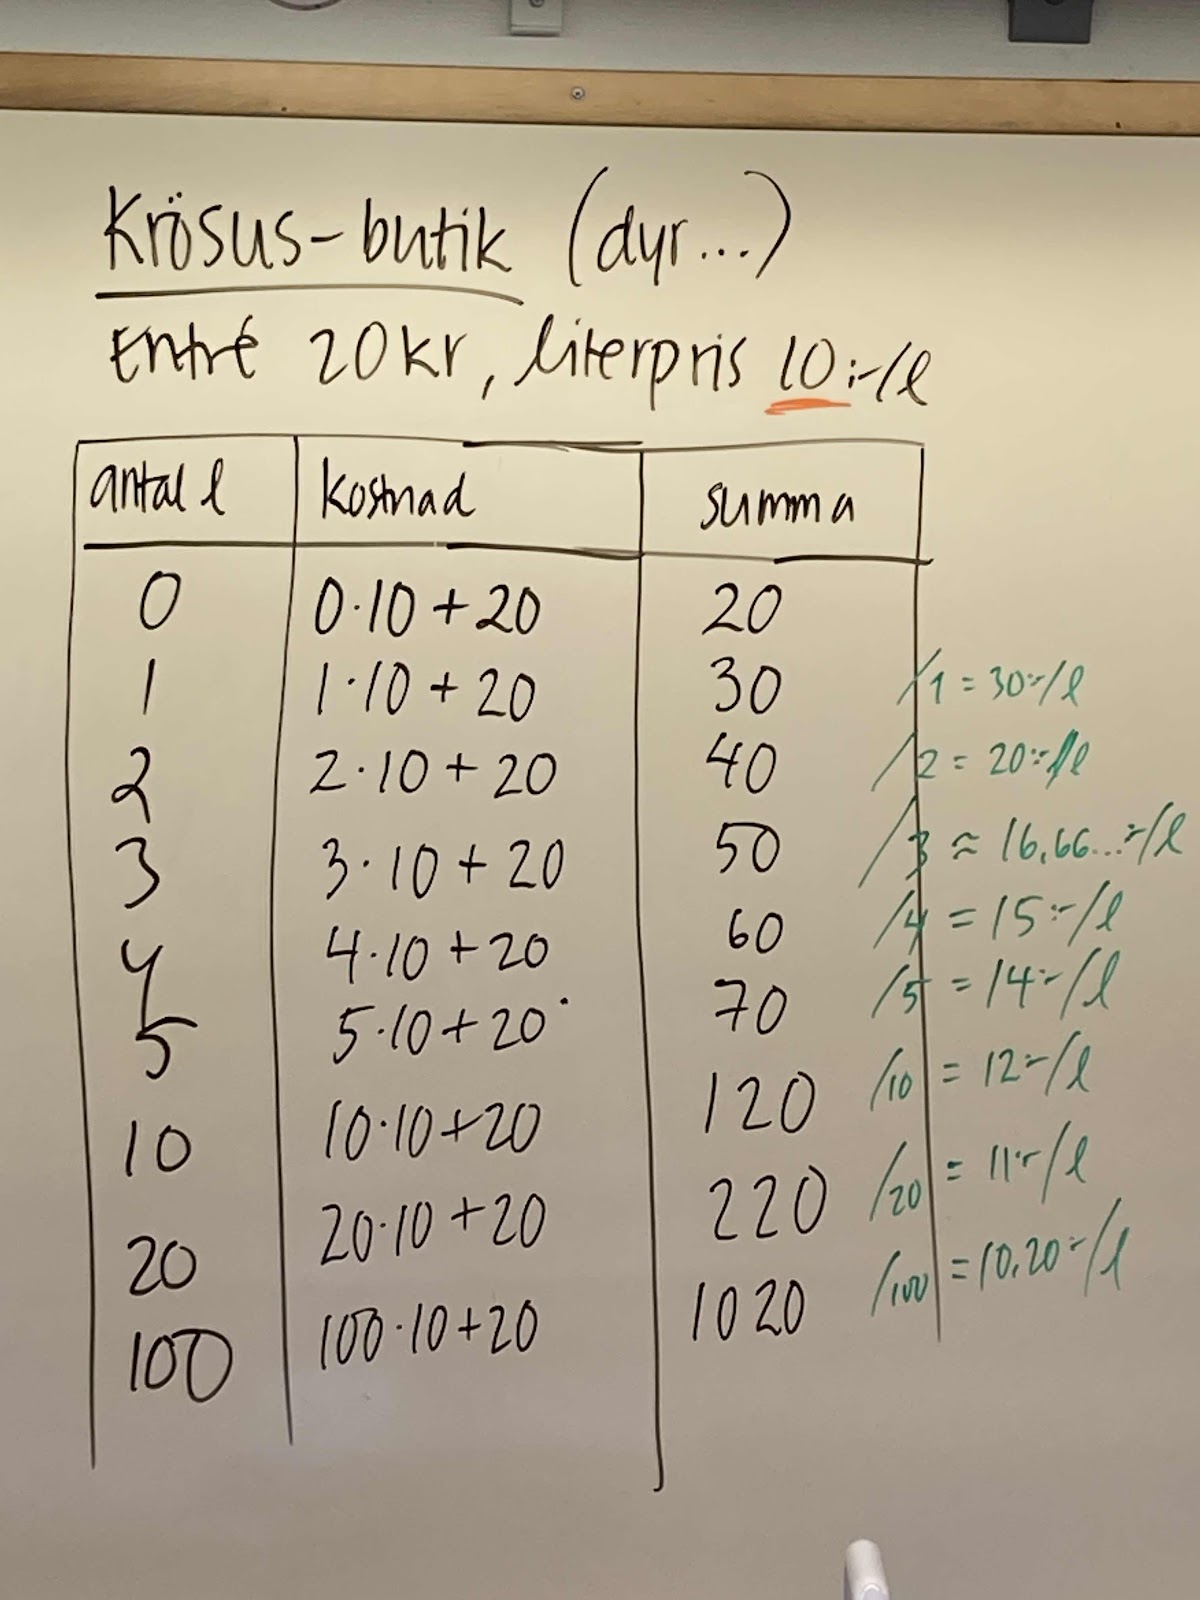 Krösus-butik (dyr...)
Entré 20kr, literpris 10:-/l
antal l kostnad summa
0 0·10+20 20
1 1·10+20 30 /1 = 30:-/l
2 2·10+20 40 /2 = 20:-/l
3 3·10+20 50 /3 ≈ 16,66...:-/l
4 4·10+20 60 /4 = 15:-/l
5 5·10+20 70 /5 = 14:-/l
10 10·10+20 120 /10 = 12:-/l
20 20·10+20 220 /20 = 11:-/l
100 100·10+20 1020 /100 = 10,20:-/l